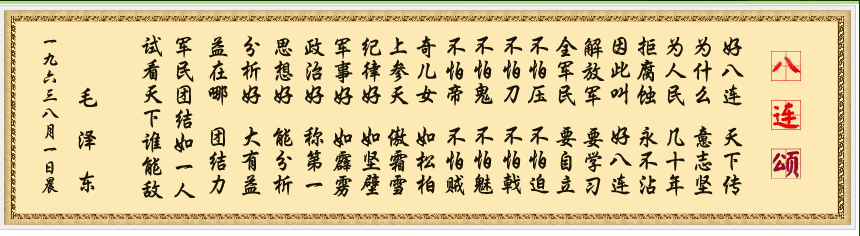 八连颂
好八连 天下传
为什么 意志坚
为人民 几十年
拒腐蚀 永不沾
因此叫 好八连
解放军 要学习
全军民 要自立
不怕压 不怕迫
不怕刀 不怕戟
不怕鬼 不怕魅
不怕帝 不怕贼
奇儿女 如松柏
上参天 傲霜雪
纪律好 如坚壁
军事好 如霹雳
政治好 称第一
思想好 能分析
分析好 大有益
益在哪 团结力
军民团结如一人
试看天下谁能敌
毛泽东
一九六三八月一日晨